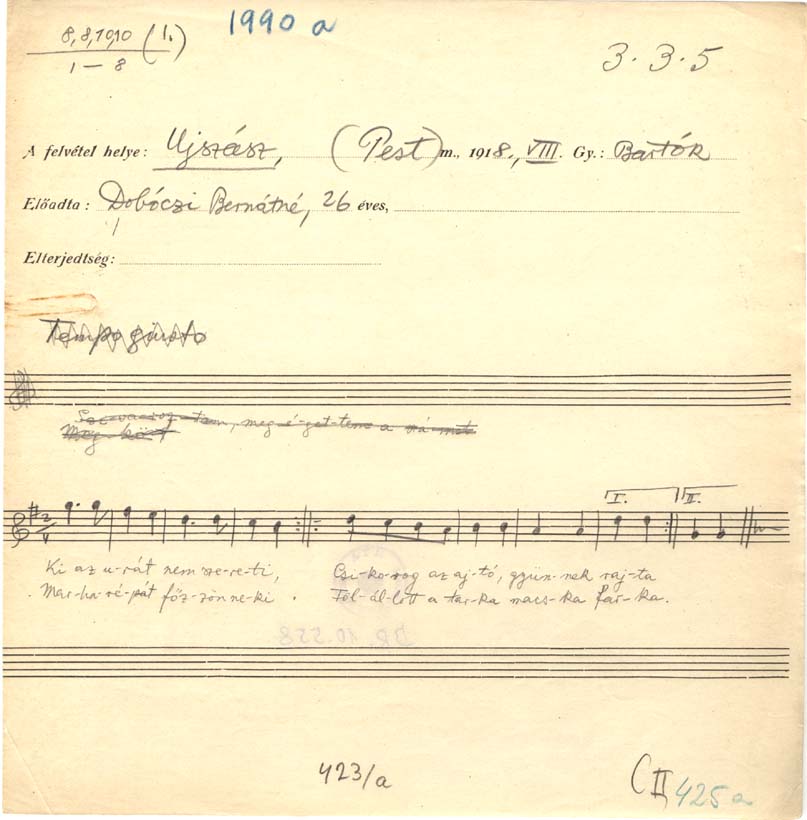 8,8,10,10 (1.)
1 – 8
1990 a
3·3·5
A felvétel helye: Ujszász, (Pest) m., 1918., VIII. Gy.: Bartók
Előadta: Dobóczi Bernátné, 26 éves,
Elterjedtség:
Tempo giusto
meg-é-get-tem a
Meg-
I. II.
Ki az u-rát nem sze-re-ti, Csi-ko-rog az aj-tó, gyün-nek raj-ta
Mar-ha-ré-pát főz-zön ne-ki. Föl-ál-lott a tar-ka macs-ka far-ka.
423/a
C II 425 a